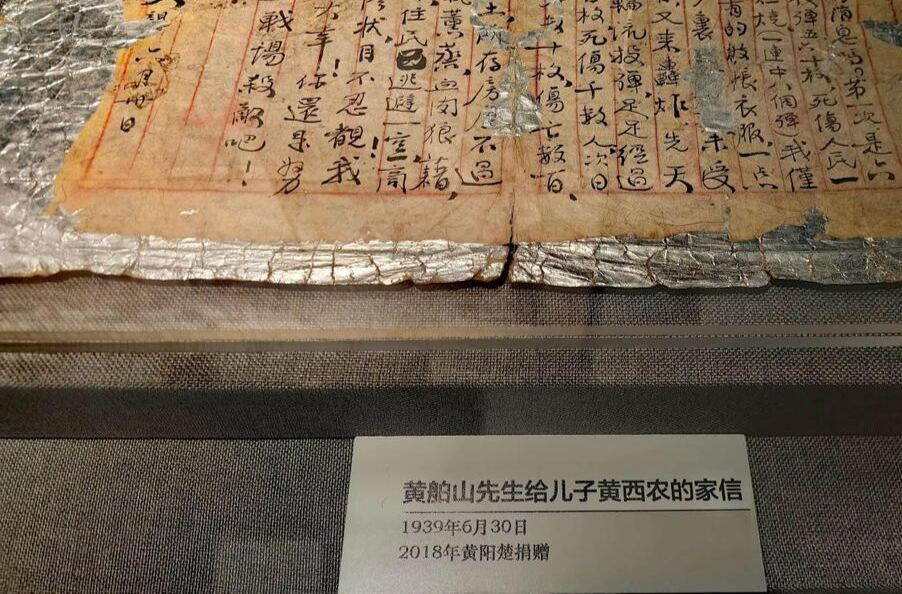 消息吗?第一次是六
投彈五六十枚,死傷人民一
燒(一連中八個彈)我僅
有的救帳衣服一点
裏 未受
又来轟炸先天
輪流投彈足足經過
枚死傷千數人次日
數十枚,傷亡數百,
土,所存房 不過
血肉狼藉,
住民已逃避一空,
状目不忍觀!我
你還是努
戰場殺敵吧!
六月卅日
黄舶山先生给儿子黄西农的家信
1939年6月30日
2018年黄阳楚捐赠